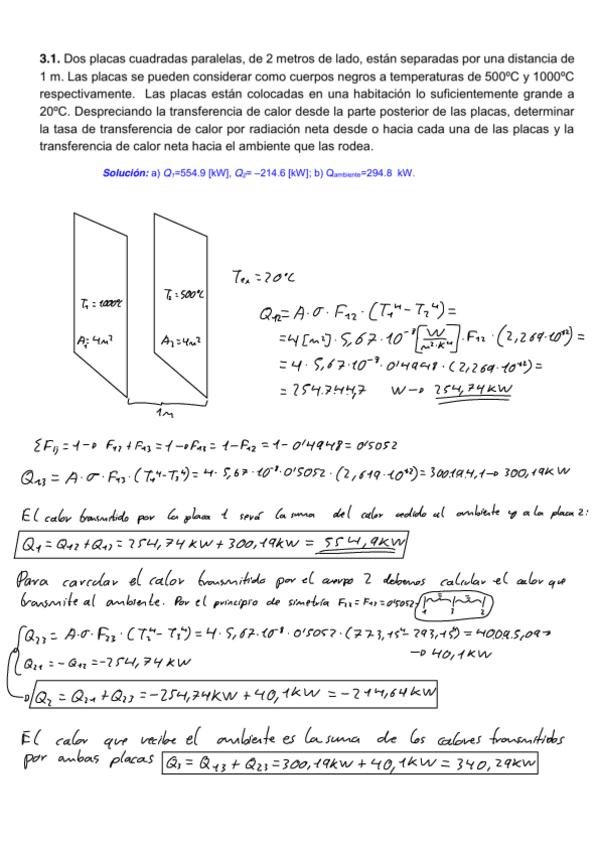 3.1. Dos placas cuadradas paralelas, de 2 metros de lado, están separadas por una distancia de
1 m. Las placas se pueden considerar como cuerpos negros a temperaturas de 500ºC y 1000ºC
respectivamente. Las placas están colocadas en una habitación lo suficientemente grande a
20ºC. Despreciando la transferencia de calor desde la parte posterior de las placas, determinar
la tasa de transferencia de calor por radiación neta desde o hacia cada una de las placas y la
transferencia de calor neta hacia el ambiente que las rodea.
Solución: a) Q₁=554.9 [kW], Q₂= –214.6 [kW]; b) Qambiente=294.8 kW.
T₁ = 1000ºC
A₁ = 4m²
T₂ = 500ºC
A₂ = 4m²
1m
= 20ºC
Q₁₂ = A·σ·F₁₂·(T₁⁴-T₂⁴) =
= 4[m²]·5,67·10⁻⁸[W/m²·K⁴]·F₁₂·(2,269·10¹²) =
= 4·5,67·10⁻⁸·0'4948·(2,269·10¹²) =
= 254.744,7 W → 254,74 kW
ΣFij = 1 → F₁₂ + F₁₃ = 1 → F₁₃ = 1 - F₁₂ = 1 - 0'4948 = 0'5052
Q₁₃ = A·σ·F₁₃·(T₁⁴-T₃⁴) = 4·5,67·10⁻⁸·0'5052·(2,619·10¹²) = 300194,1 → 300,19 kW
El calor transmitido por la placa 1 será la suma del calor cedido al ambiente y a la placa 2:
Q₁ = Q₁₂ + Q₁₃ = 254,74 kW + 300,19 kW = 554,9 kW
Para calcular el calor transmitido por el cuerpo 2 debemos calcular el calor que
transmite al ambiente. Por el principio de simetría F₂₃ = F₁₃ = 0'5052
Q₂₃ = A·σ·F₂₃·(T₂⁴-T₃⁴) = 4·5,67·10⁻⁸·0'5052·(773,15⁴-293,15⁴) = 40095,09
→ 40,1 kW
Q₂₁ = -Q₁₂ = -254,74 kW
→ Q₂ = Q₂₁ + Q₂₃ = -254,74 kW + 40,1 kW = -214,64 kW
El calor que recibe el ambiente es la suma de los calores transmitidos
por ambas placas Q₃ = Q₁₃ + Q₂₃ = 300,19 kW + 40,1 kW = 340,29 kW